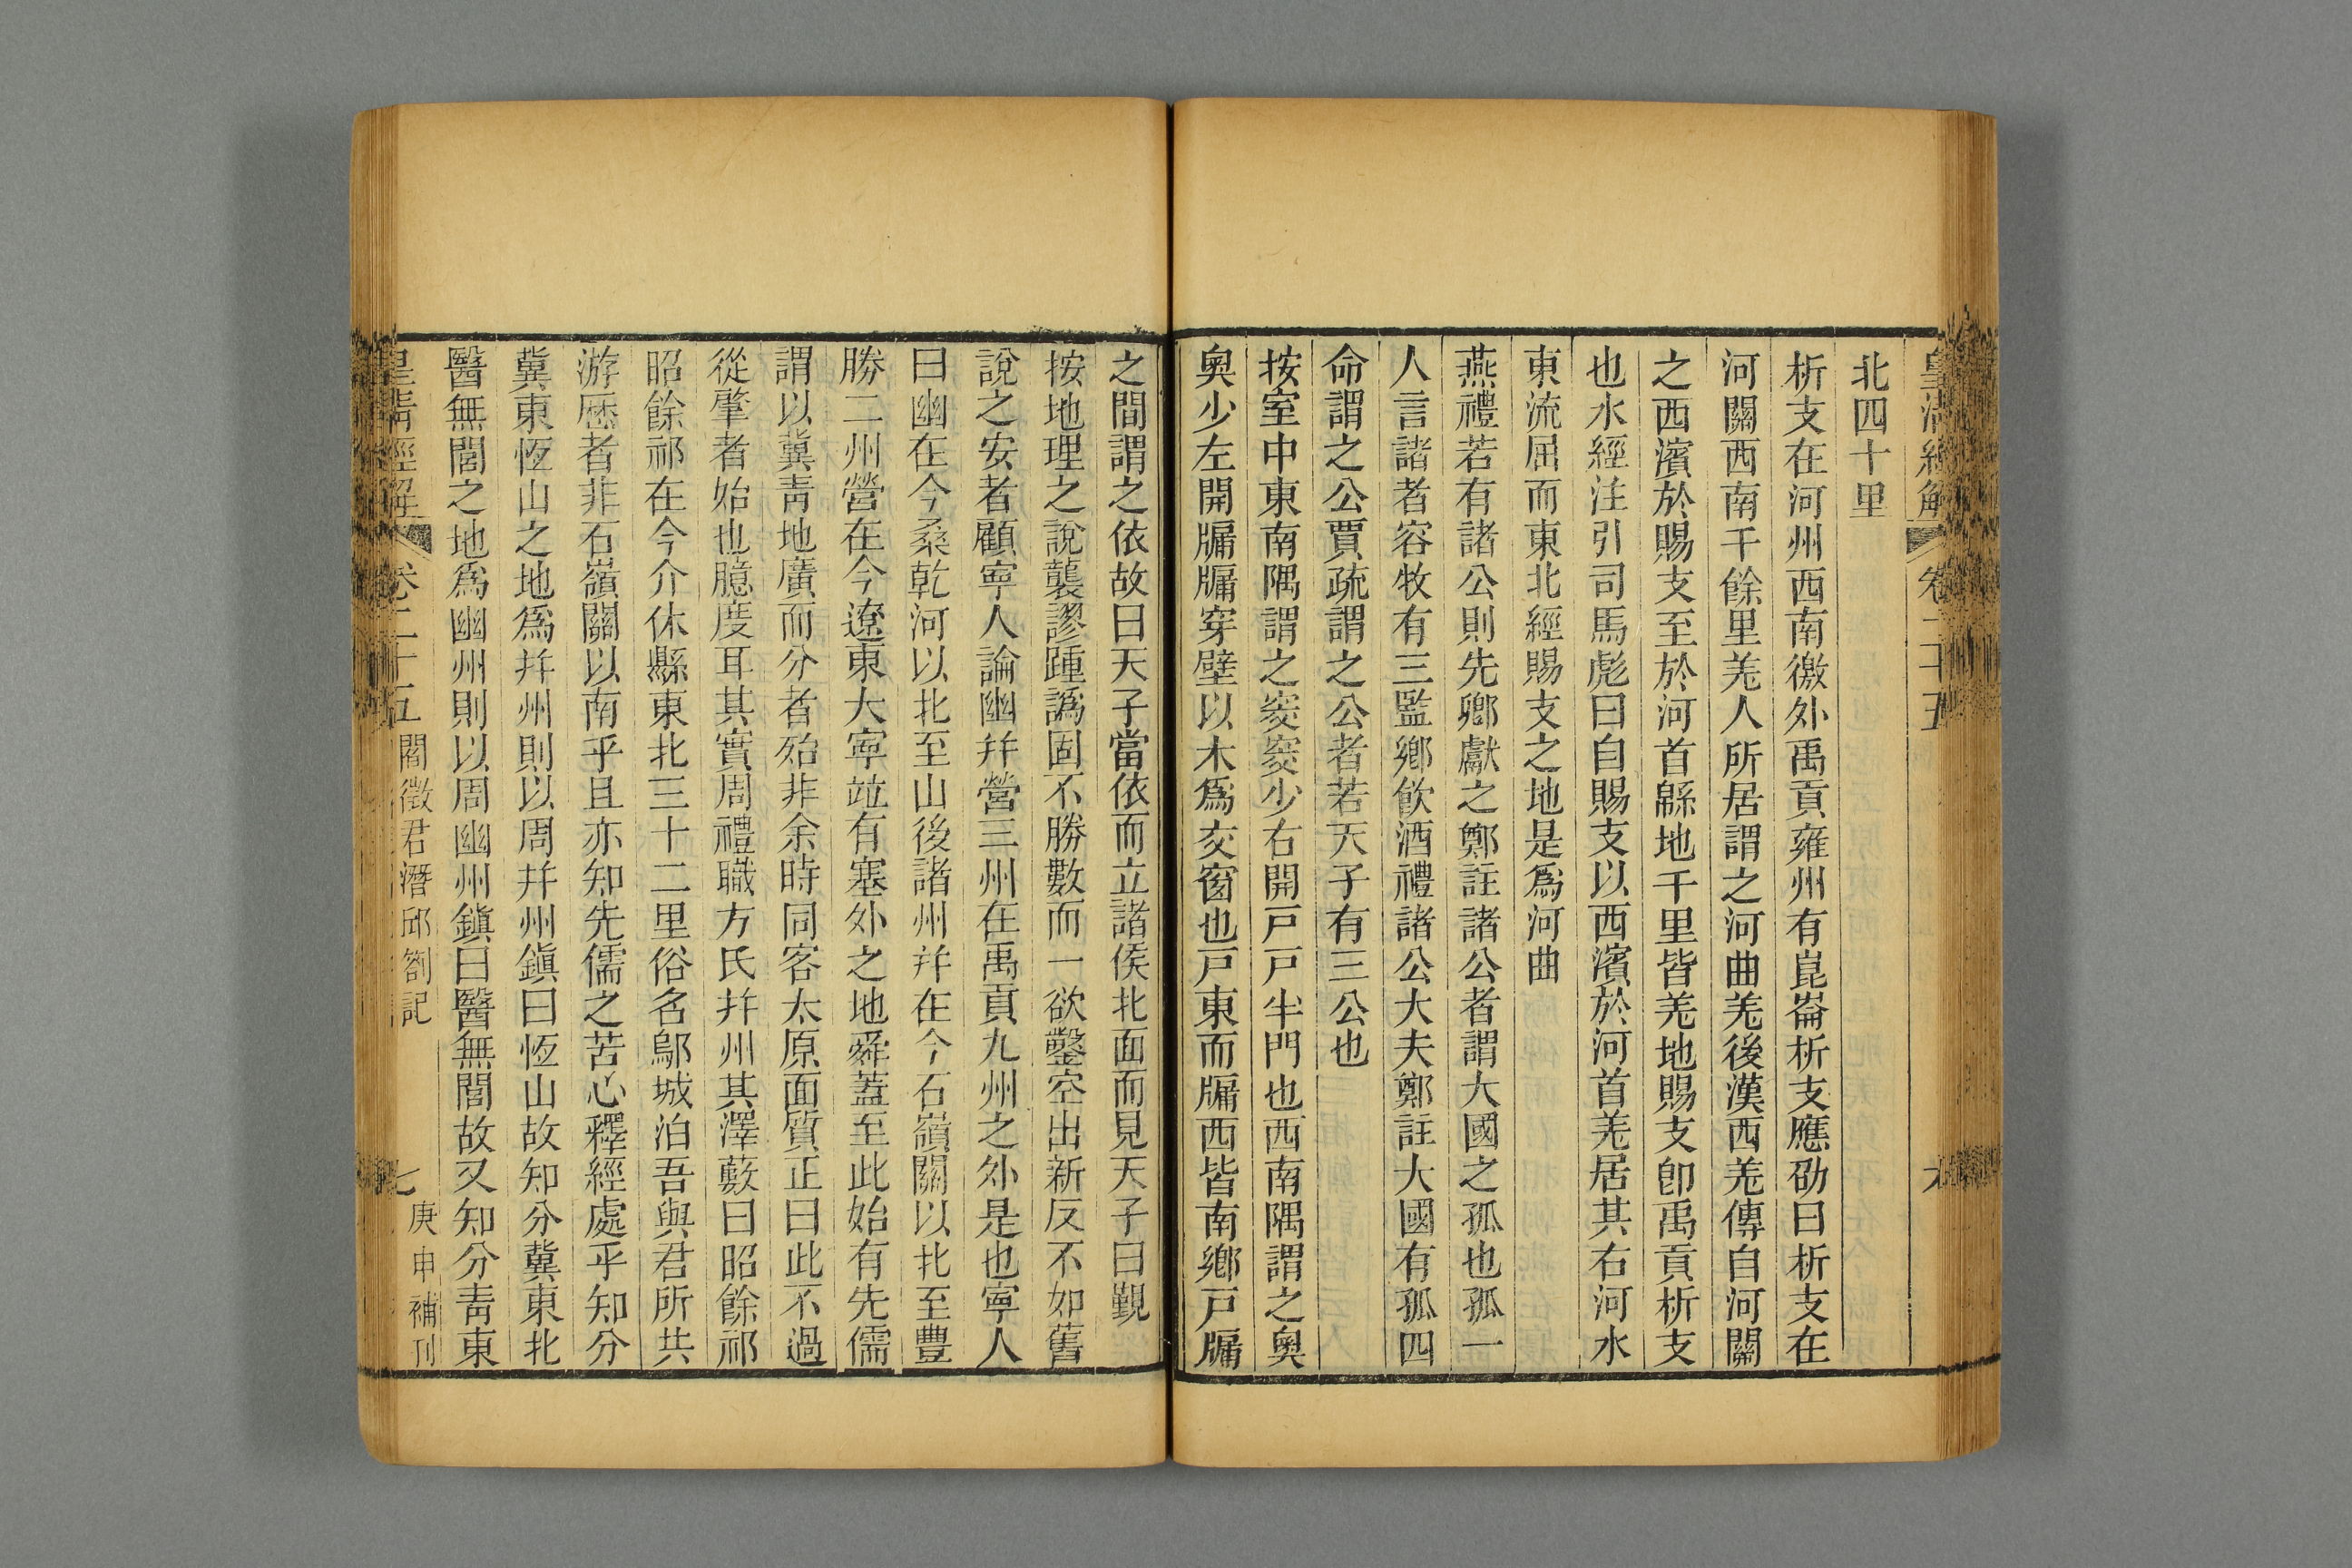 皇清經解 卷二十五 六
北四十里
析支在河州西南徼外禹貢雍州有崑崙析支應劭曰析支在
河關西南千餘里羌人所居謂之河曲羌後漢西羌傳自河關
之西濱於賜支至於河首緜地千里皆羌地賜支卽禹貢析支
也水經注引司馬彪曰自賜支以西濱於河首羌居其右河水
東流屈而東北經賜支之地是爲河曲
燕禮若有諸公則先卿獻之鄭註諸公者謂大國之孤也孤一
人言諸者容牧有三監鄉飮酒禮諸公大夫鄭註大國有孤四
命謂之公賈疏謂之公者若天子有三公也
按室中東南隅謂之窔窔少右開戸戸半門也西南隅謂之奧
奧少左開牖牖穿壁以木爲交窗也戸東而牖西皆南鄉戸牖
之間謂之依故曰天子當依而立諸侯北面而見天子曰覲
按地理之說襲謬踵譌固不勝數而一欲鑿空出新反不如舊
說之安者顧寧人論幽幷營三州在禹貢九州之外是也寧人
曰幽在今桑乾河以北至山後諸州幷在今石嶺關以北至豐
勝二州營在今遼東大寧竝有塞外之地舜蓋至此始有先儒
謂以冀靑地廣而分者殆非余時同客太原面質正曰此不過
從肇者始也臆度耳其實周禮職方氏幷州其澤藪曰昭餘祁
昭餘祁在今介休縣東北三十二里俗名鄔城泊吾與君所共
游歷者非石嶺關以南乎且亦知先儒之苦心釋經處乎知分
冀東恆山之地爲幷州則以周幷州鎭曰恆山故知分冀東北
醫無閭之地爲幽州則以周幽州鎭曰醫無閭故又知分靑東
皇淸經解 卷二十五 閻徵君潛邱劄記 七 庚申補刊